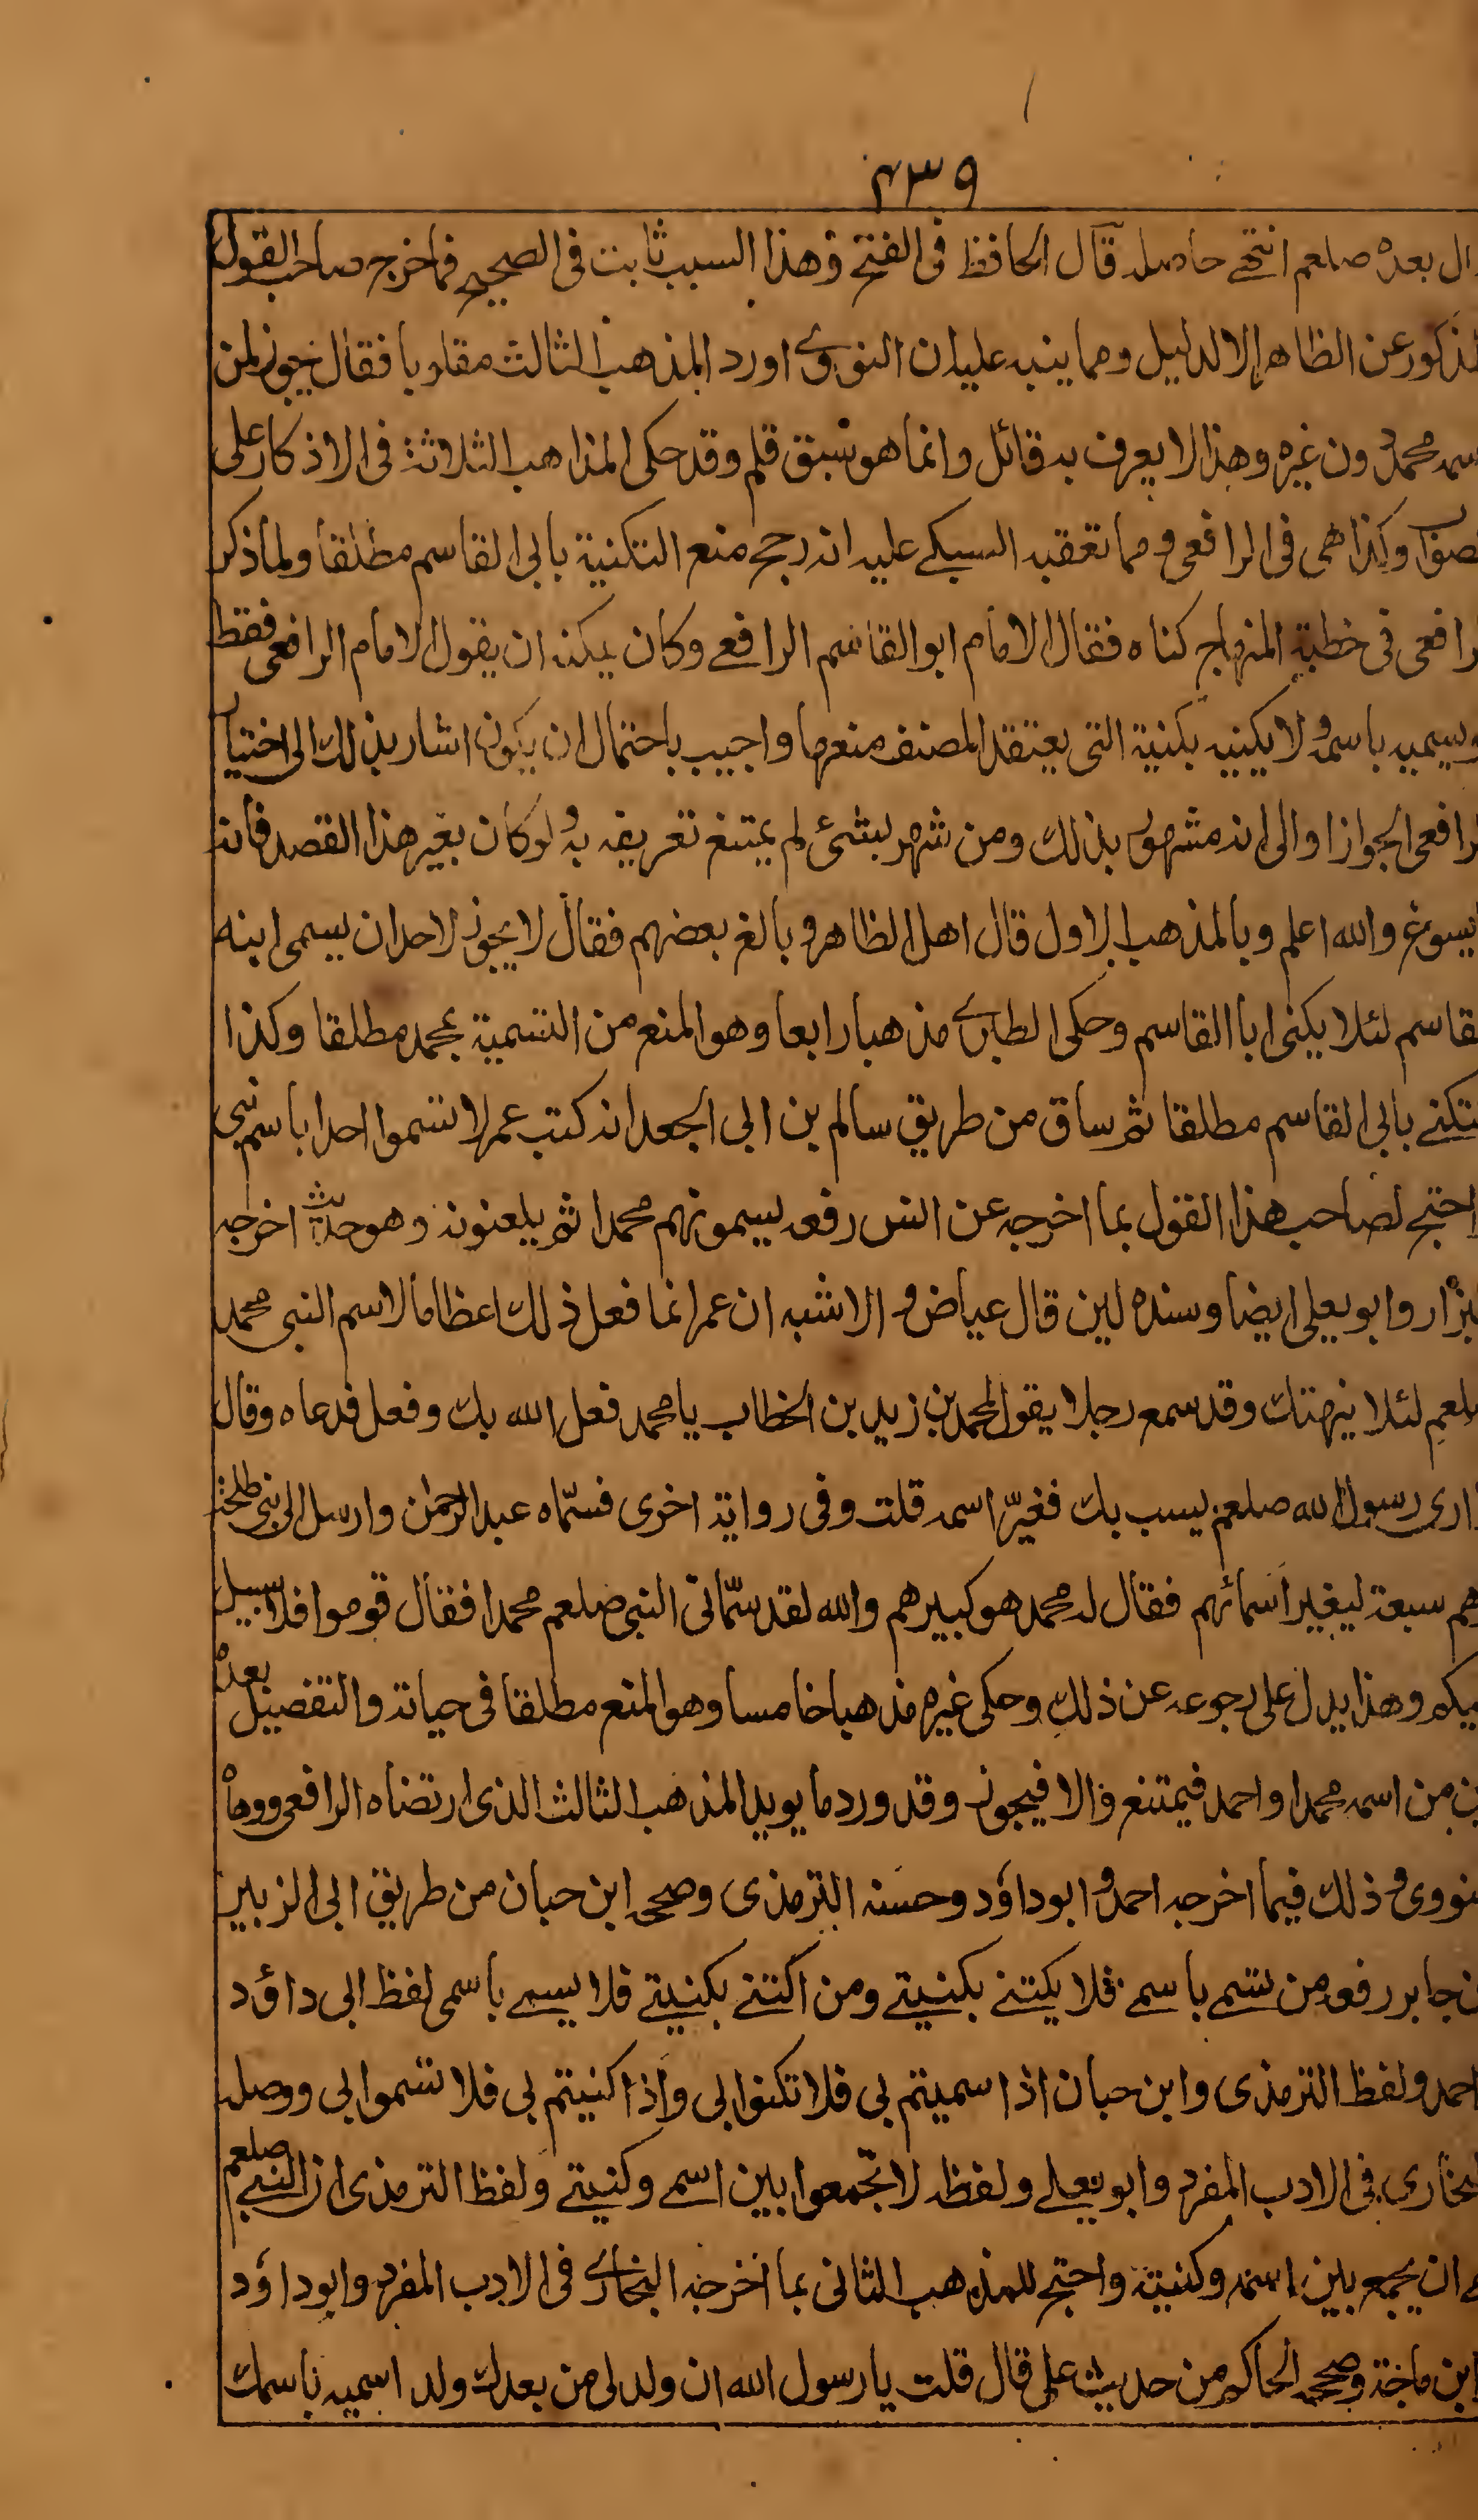 ٤٣٩
ال بعده صلعم انتهى حاصله قال الحافظ فى الفتح وهذا السبب ثابت فى الصحيح فما خرج صاحب القول
لمذكور عن الظاهر الا لدليل ومما ينبه عليه ان النووى اورد المذهب الثالث مقلوبا فقال يجوز لمن
سمه محمد دون غيره وهذا لا يعرف به قائل وانما هو سبق قلم وقد حكى المذاهب الثلاثة فى الاذكار على
لصواب وكذا هى فى الرافعى ومما تعقبه السبكى عليه انه رجح منع التكنية بابى القاسم مطلقا ولما ذكر
لرافعى فى خطبة المنهاج كناه فقال الامام ابو القاسم الرافعى وكان يمكنه ان يقول الامام الرافعى فقط
ويسميه باسمه ولا يكنيه بكنية التى يعتقد المصنف منعها واجيب باحتمال ان يكون اشار بذلك الى اختيار
لرافعى الجواز او الى انه مشهور بذلك ومن شهر بشئ لم يمتنع تعريفه به ولو كان بغير هذا القصد فانه
يسوغ والله اعلم وبالمذهب الاول قال اهل الظاهر وبالغ بعضهم فقال لا يجوز لاحد ان يسمى ابنه
لقاسم لئلا يكنى ابا القاسم وحكى الطبرى مذهبا رابعا وهو المنع من التسمية بمحمد مطلقا وكذا
لتكنى بابى القاسم مطلقا ثم ساق من طريق سالم بن ابى الجعد انه كتب عمر لا تسموا احدا باسم نبى
احتج لصاحب هذا القول بما اخرجه عن انس رفعه يسمونهم محمدا ثم يلعنونه وهو حديث اخرجه
لبزار وابو يعلى ايضا وسنده لين قال عياض والاشبه ان عمر انما فعل ذلك اعظاما لاسم النبى محمد
صلعم لئلا ينهتك وقد سمع رجلا يقول لمحمد بن زيد بن الخطاب يا محمد فعل الله بك وفعل فدعاه وقال
ارى رسول الله صلعم يسب بك فغيّر اسمه قلت وفى رواية اخرى فسمّاه عبد الرحمن وارسل الى بنى طلحة
هم سبعة ليغير اسمائهم فقال له محمد هو كبيرهم والله لقد سمّانى النبى صلعم محمدا فقال قوموا فلا سبيل
ليكم وهذا يدل على رجوعه عن ذلك وحكى غيره مذهبا خامسا وهو المنع مطلقا فى حياته والتفصيل بعده
ين من اسمه محمدا واحمد فيمتنع والا فيجوز وقد ورد ما يويد المذهب الثالث الذى ارتضاه الرافعى ووهاه
لنووى وذلك فيما اخرجه احمد وابو داؤد وحسنه الترمذى وصححه ابن حبان من طريق ابى الزبير
ن جابر رفعه من تسم باسمى فلا يكتنى بكنيتى ومن اكتنى بكنيتى فلا يسمى باسمى لفظ ابى داؤد
احمد ولفظ الترمذى وابن حبان اذا سميتم بى فلا تكنوا بى واذا كنيتم بى فلا تسموا بى ووصله
لبخارى فى الادب المفرد وابو يعلى ولفظه لا تجمعوا بين اسمى وكنيتى ولفظ الترمذى ان النبى صلعم
ى ان يجمع بين اسمه وكنيته واحتج للمذهب الثانى بما اخرجه البخارى فى الادب المفرد وابو داؤد
ابن ماجة وصححه الحاكم من حديث على قال قلت يا رسول الله ان ولد لى من بعدك ولد اسميه باسمك